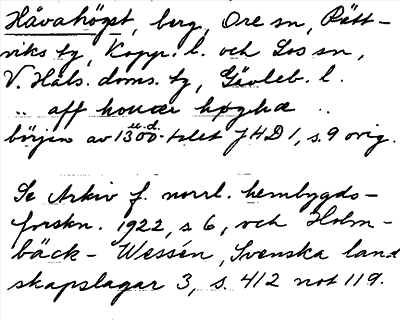 Håvahöget, berg, Ore sn, Rätt-
viks tg, Kopp. l. och Los sn,
V. Häls. doms. tg, Gävleb. l.
.. aff houær høghæ ..
början av 1300-talet u.d. JHD 1, s. 9 orig.
Se Arkiv f. norrl. hembygds-
forskn. 1922, s. 6, och Holm-
bäck - Wessén, Svenska land
skapslagar 3, s. 412 not 119.